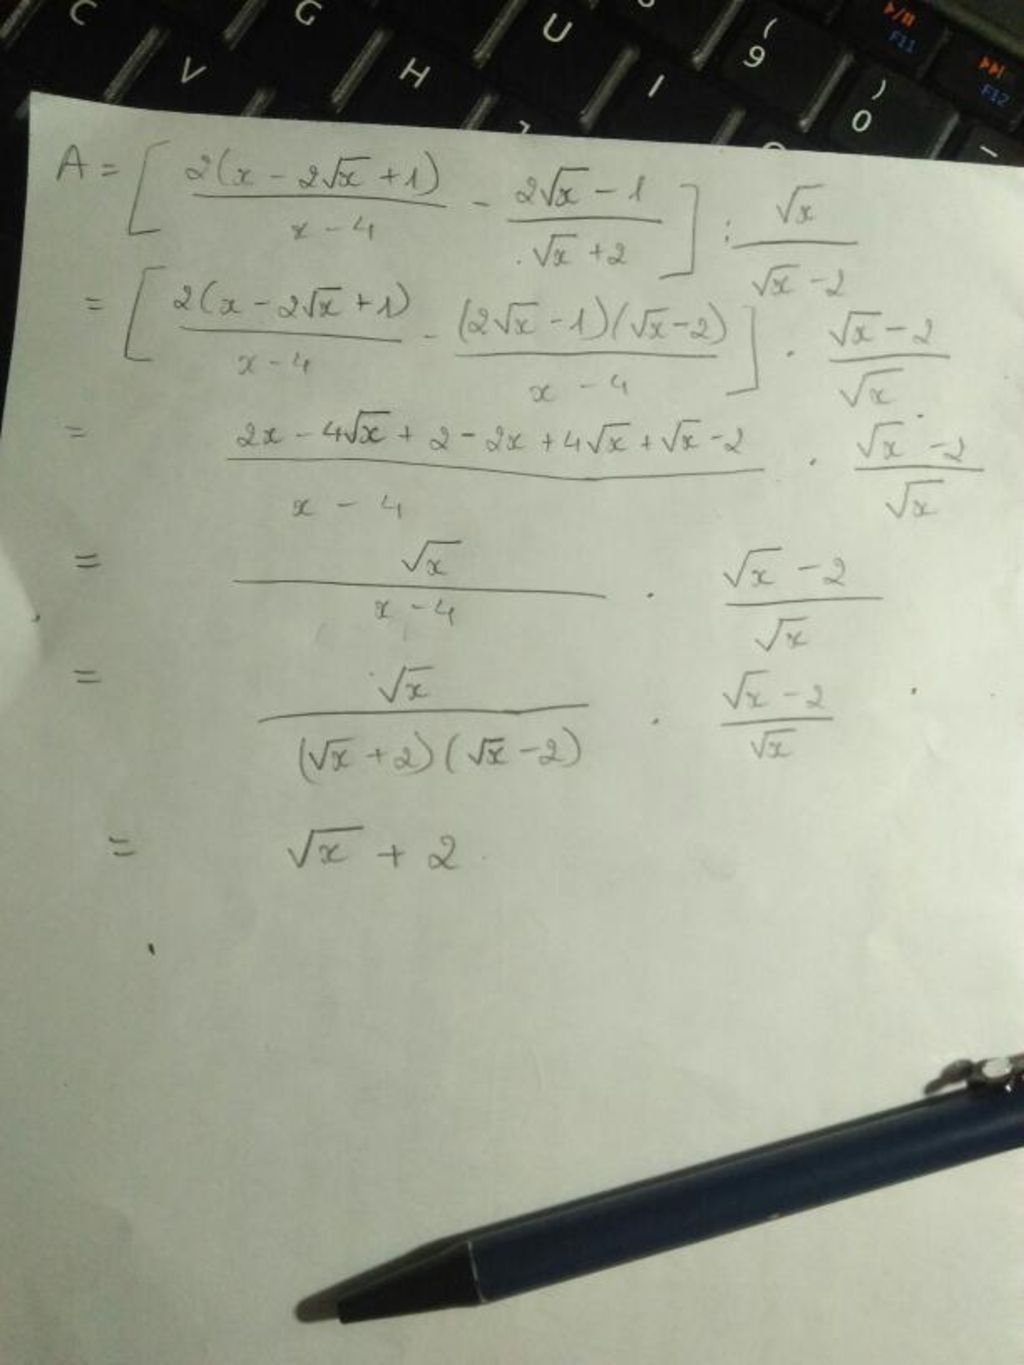 C G U ( 9 ▶/⏸ F11
V H I ) 0 ▶▶| F12
A = [ 2(x - 2√x + 1) / (x - 4) - (2√x - 1) / (√x + 2) ] : √x / (√x - 2)
= [ 2(x - 2√x + 1) / (x - 4) - (2√x - 1)(√x - 2) / (x - 4) ] . (√x - 2) / √x
= (2x - 4√x + 2 - 2x + 4√x + √x - 2) / (x - 4) . (√x - 2) / √x
= √x / (x - 4) . (√x - 2) / √x
= √x / ((√x + 2)(√x - 2)) . (√x - 2) / √x
= √x + 2